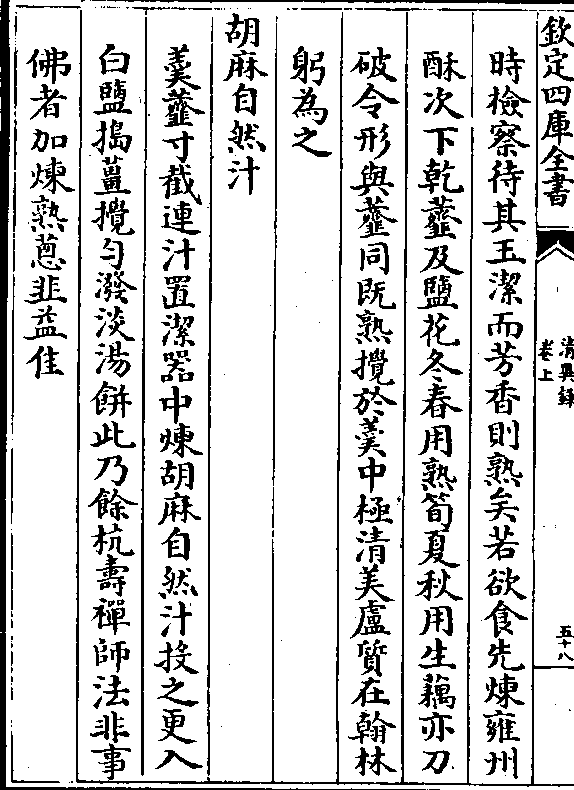 欽定四庫全書
清異錄
卷上
五十八
時檢察待其玉潔而芳香則熟矣若欲食先煉雍州
酥次下乾虀及鹽花冬春用熟筍夏秋用生藕亦刀
破令形與虀同既熟攪於羹中極清美盧質在翰林
躬為之
胡麻自然汁
羹虀寸截連汁置潔器中煉胡麻自然汁投之更入
白鹽搗薑攪勻潑淡湯餅此乃餘杭壽禪師法非事
佛者加煉熟蔥韭益佳